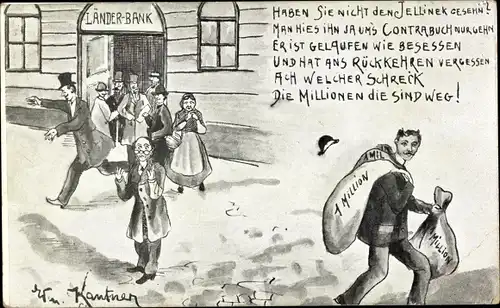 LÄNDER-BANK
HABEN SIE NICHT DEN JELLINEK GESEHN?
MAN HIES IHN JA UM'S CONTRABUCH NUR GEHN
ER IST GELAUFEN WIE BESESSEN
UND HAT ANS RÜCKKEHREN VERGESSEN
ACH WELCHER SCHRECK
DIE MILLIONEN DIE SIND WEG!
1 MIL
1 MILLION
MILLION
Wm. Kantner